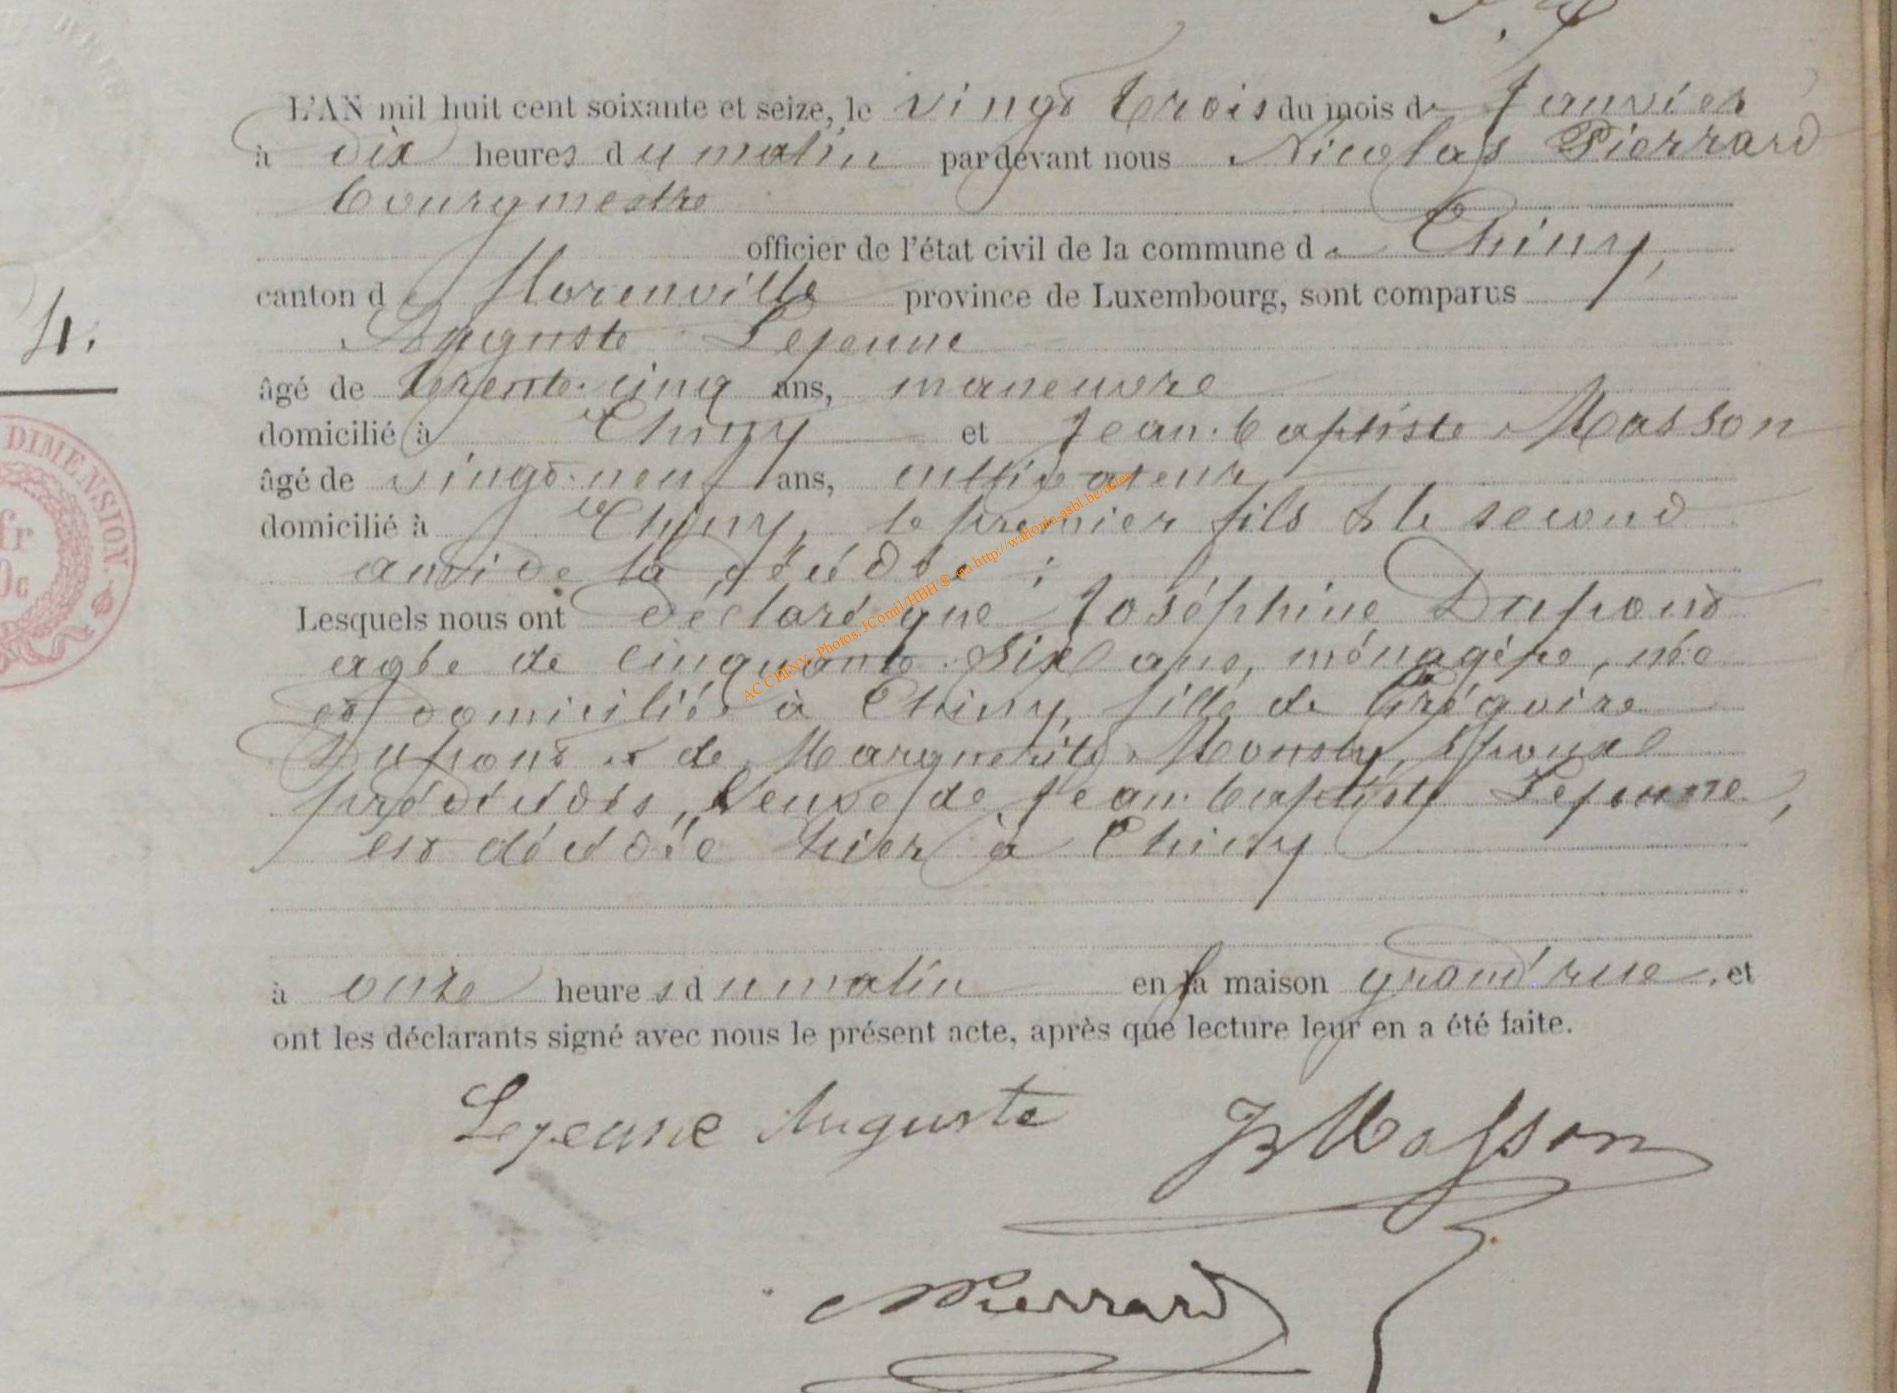 L'AN mil huit cent soixante et seize, le vingt trois du mois de Janvier
à dix heures du matin pardevant nous Nicolas Pierrard
bourgmestre
officier de l'état civil de la commune de Chiny,
canton de Florenville province de Luxembourg, sont comparus
4.
Auguste Lejeune
âgé de trente-cinq ans, maneuvre
domicilié à Chiny et Jean-baptiste Masson
âgé de vingt-neuf ans, cultivateur
domicilié à Chiny, le premier fils & le second
ami de la décédée ;
DIMENSION.
fr
0c
Lesquels nous ont déclaré que Joséphine Dupont
agée de cinquante-six ans, ménagère, née
et domiciliée à Chiny, fille de Grégoire
Dupont et de Marguerite epouse
prédécédés, Veuve de Jean-baptiste Lejeune,
est décédée hier à Chiny
à onze heures du matin en la maison grand'rue, et
ont les déclarants signé avec nous le présent acte, après que lecture leur en a été faite.
Lejeune Auguste JB Masson
NPierrard
AC CHINY_ Photos: JCornil/HBH ® via http://wallonia-asbl.be/actes